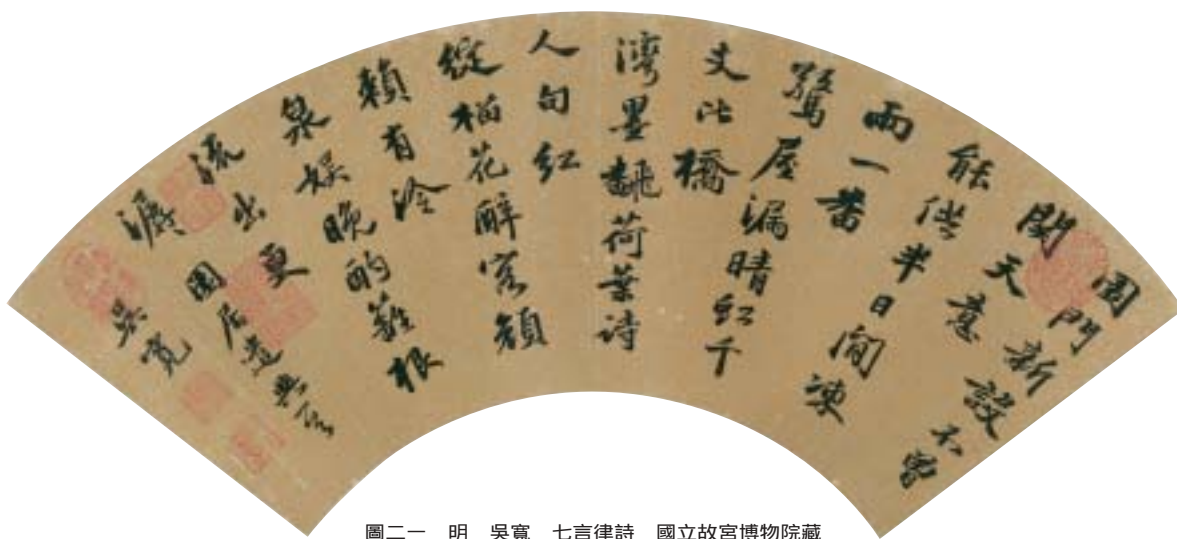 園門新設不
關天意
能供半日閒凍
雨一番
驚屋漏晴虹千
丈比橋
灣墨翻荷葉詩
人句紅
綻榴花醉客顏
賴有冷
泉娛晚酌籬根
流出更
潺 園居遣興
吳寬
圖二一 明 吳寬 七言律詩 國立故宮博物院藏